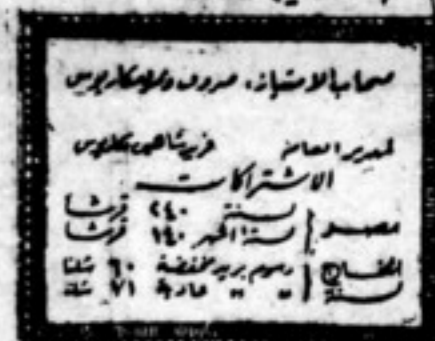 صحاب الامتياز. صروف وشاهين مكاريوس
المدير العام فريد شاهين مكاريوس
الاشتراكات
مصر | لسنة ٢٤٠ قرشا
لستة اشهر ١٤٠ قرشا
الخارج | رسوم بريد مخفضة ٦٠ شلنا
لسنة | " " عادية ٧١ شلنا